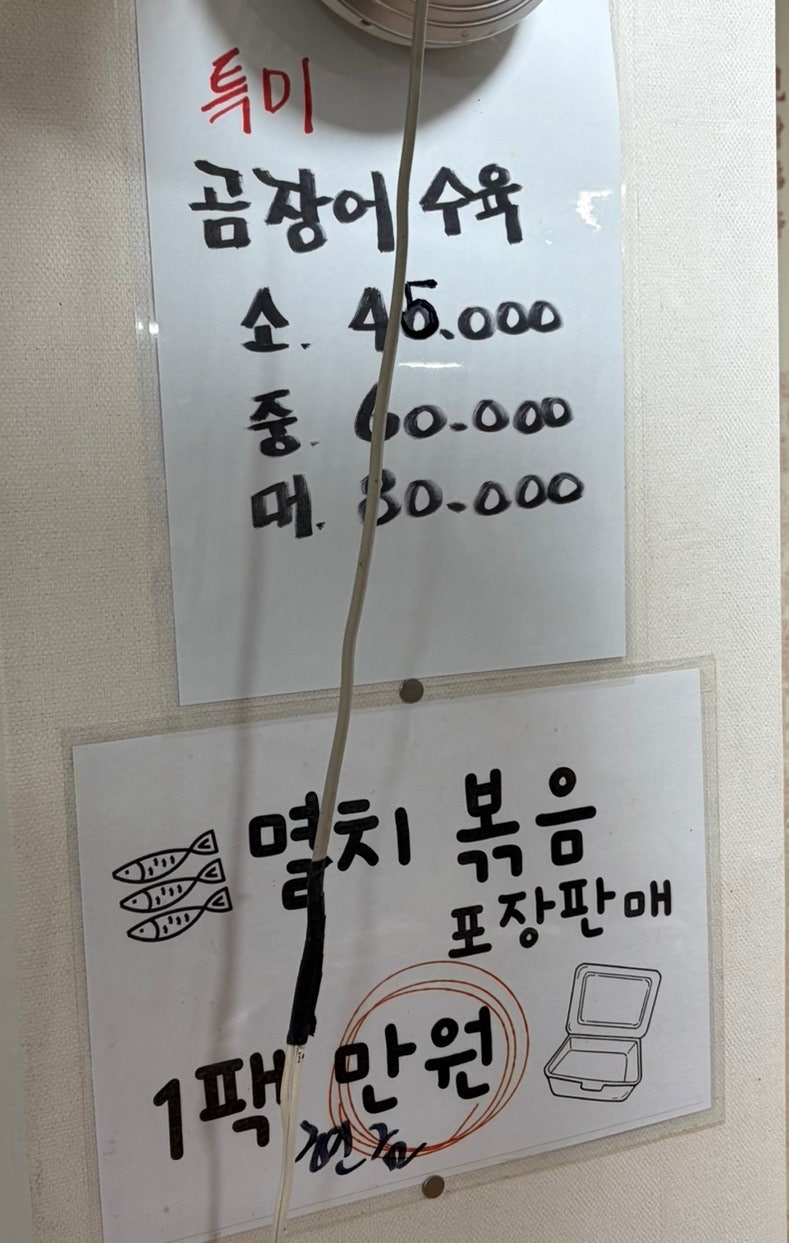 특미
곰장어 수육
소. 45.000
중. 60.000
대. 80.000
멸치 볶음
포장판매
1팩 만원
현금